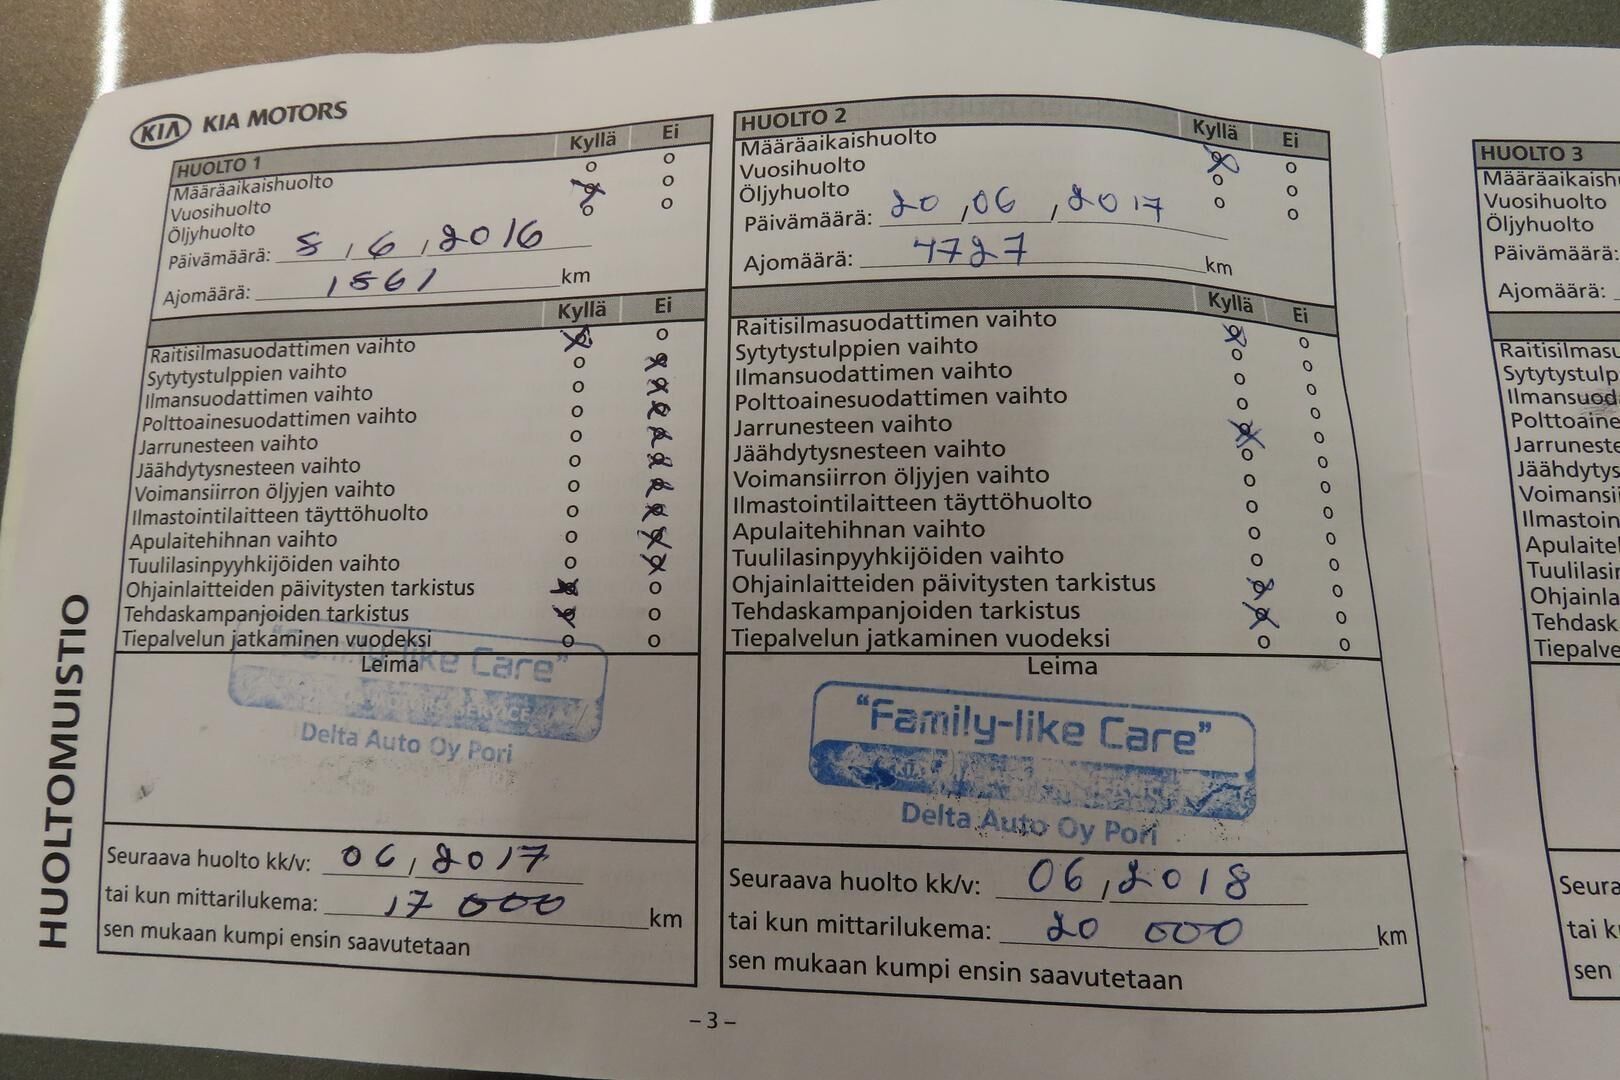 KIA KIA MOTORS
HUOLTO 1 Kyllä Ei
Määräaikaishuolto o o
Vuosihuolto x o
Öljyhuolto o o
Päivämäärä: 8,6,2016
Ajomäärä: 1561 km
Kyllä Ei
Raitisilmasuodattimen vaihto x o
Sytytystulppien vaihto o x
Ilmansuodattimen vaihto o x
Polttoainesuodattimen vaihto o x
Jarrunesteen vaihto o x
Jäähdytysnesteen vaihto o x
Voimansiirron öljyjen vaihto o x
Ilmastointilaitteen täyttöhuolto o x
Apulaitehihnan vaihto o x
Tuulilasinpyyhkijöiden vaihto o x
Ohjainlaitteiden päivitysten tarkistus x o
Tehdaskampanjoiden tarkistus x o
Tiepalvelun jatkaminen vuodeksi o o
Leima
"Family-like Care"
MOTORS SERVICE
Delta Auto Oy Pori
Seuraava huolto kk/v: 06,2017
tai kun mittarilukema: 17 000 km
sen mukaan kumpi ensin saavutetaan
HUOLTO 2 Kyllä Ei
Määräaikaishuolto x o
Vuosihuolto o o
Öljyhuolto o o
Päivämäärä: 20,06,2017
Ajomäärä: 4727 km
Kyllä Ei
Raitisilmasuodattimen vaihto x o
Sytytystulppien vaihto o o
Ilmansuodattimen vaihto o o
Polttoainesuodattimen vaihto o o
Jarrunesteen vaihto x o
Jäähdytysnesteen vaihto o o
Voimansiirron öljyjen vaihto o o
Ilmastointilaitteen täyttöhuolto o o
Apulaitehihnan vaihto o o
Tuulilasinpyyhkijöiden vaihto o o
Ohjainlaitteiden päivitysten tarkistus x o
Tehdaskampanjoiden tarkistus x o
Tiepalvelun jatkaminen vuodeksi o o
Leima
"Family-like Care"
KIA
Delta Auto Oy Pori
Seuraava huolto kk/v: 06,2018
tai kun mittarilukema: 20 000 km
sen mukaan kumpi ensin saavutetaan
HUOLTOMUISTIO
– 3 –
HUOLTO 3
Määräaikaish
Vuosihuolto
Öljyhuolto
Päivämäärä:
Ajomäärä:
Raitisilmasu
Sytytystulp
Ilmansuod
Polttoaine
Jarruneste
Jäähdytys
Voimansi
Ilmastoin
Apulaite
Tuulilasi
Ohjainla
Tehdask
Tiepalve
Seura
tai k
sen